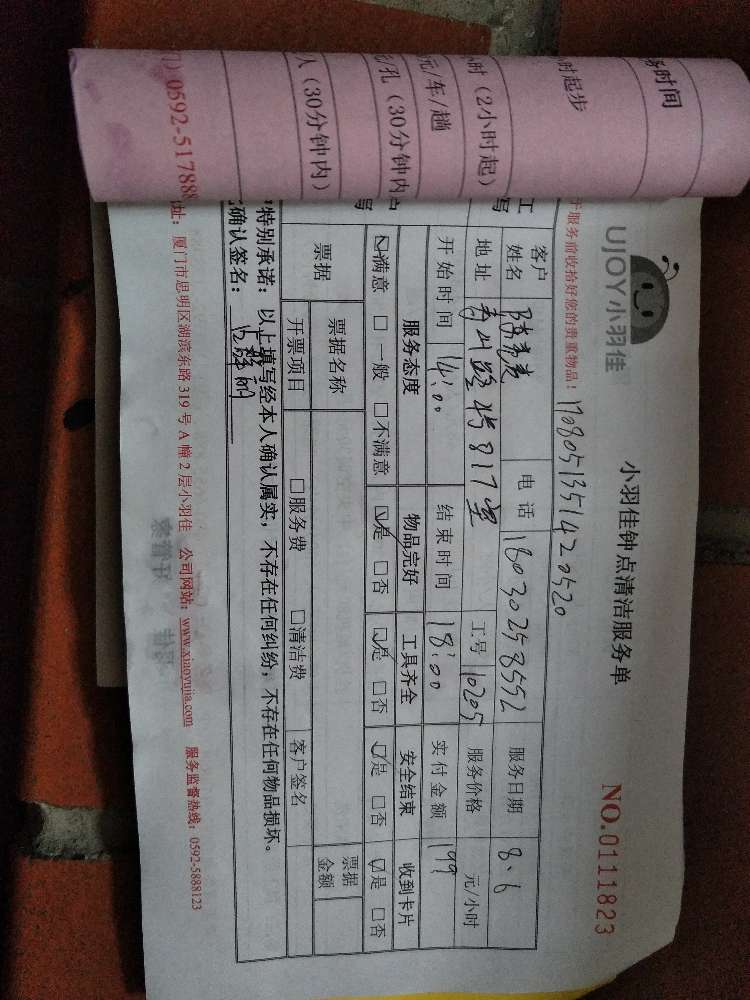 务时间
时起步
时（2小时起）
元/车/趟
元/孔（30分钟内
人（30分钟内）
0592-517888
UJOY小羽佳
小羽佳钟点清洁服务单
NO.0111823
于服务前收拾好您的贵重物品！
1708051351420520
客户姓名 电话 18030258552 服务日期 8.6
地址 817室 工号 10205 服务价格 元/小时
开始时间 14:00 结束时间 18:00 实付金额 199
服务态度 物品完好 工具齐全 安全结束 收到卡片
☑满意 □一般 □不满意 ☑是 □否 ☑是 □否 ☑是 □否 ☑是 □否
票据 票据名称 票据金额
开票项目 □服务费 □清洁费 客户签名
特别承诺：以上填写经本人确认属实，不存在任何纠纷，不存在任何物品损坏。
确认签名：
址：厦门市思明区湖滨东路319号A幢2层小羽佳 公司网站：www.xiaoyujia.com 服务监督热线：0592-5888123